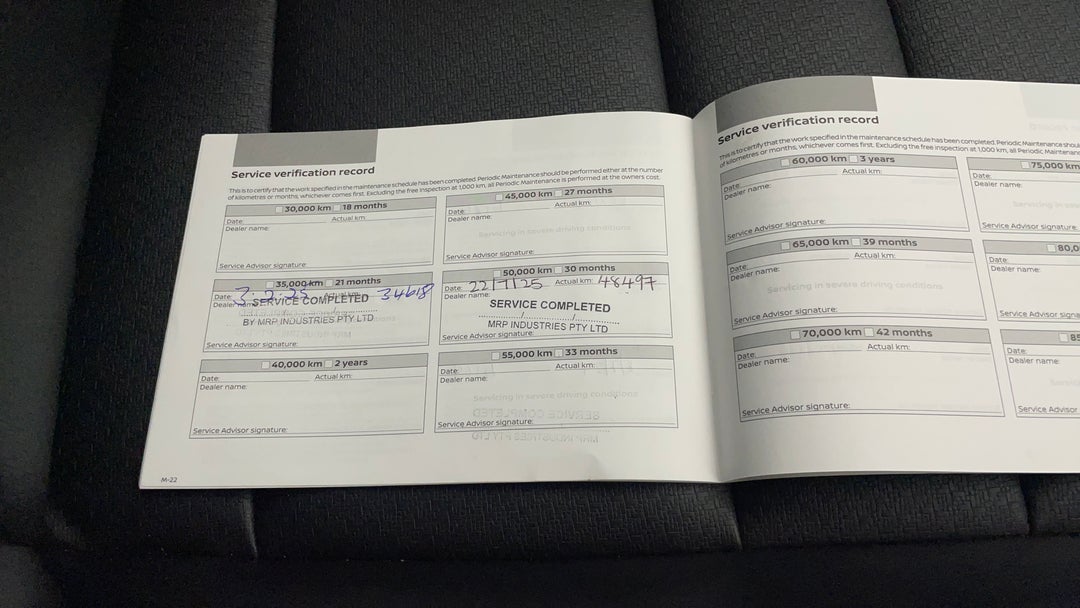 Service verification record
This is to certify that the work specified in the maintenance schedule has been completed. Periodic Maintenance should be performed either at the number
of kilometres or months, whichever comes first. Excluding the free inspection at 1,000 km, all Periodic Maintenance is performed at the owners cost.
30,000 km 18 months
Date: Actual km:
Dealer name:
Service Advisor signature:
35,000 km 21 months
Date: 3. 2. 25 Actual km: 34618
Dealer name:
SERVICE COMPLETED
BY MRP INDUSTRIES PTY LTD
Service Advisor signature:
40,000 km 2 years
Date: Actual km:
Dealer name:
Service Advisor signature:
45,000 km 27 months
Date: Actual km:
Dealer name:
Servicing in severe driving conditions
Service Advisor signature:
50,000 km 30 months
Date: 22/7/25 Actual km: 48497
Dealer name:
SERVICE COMPLETED
MRP INDUSTRIES PTY LTD
Service Advisor signature:
55,000 km 33 months
Date: Actual km:
Dealer name:
Servicing in severe driving conditions
Service Advisor signature:
M-22
Service verification record
This is to certify that the work specified in the maintenance schedule has been completed. Periodic Maintenance shou
of kilometres or months, whichever comes first. Excluding the free inspection at 1,000 km, all Periodic Maintenanc
60,000 km 3 years
Date: Actual km:
Dealer name:
Service Advisor signature:
65,000 km 39 months
Date: Actual km:
Dealer name:
Servicing in severe driving conditions
Service Advisor signature:
70,000 km 42 months
Date: Actual km:
Dealer name:
Service Advisor signature:
75,000 km
Date:
Dealer name:
Servicing in sev
Service Advisor signature:
80,0
Date:
Dealer name:
Service Advisor signa
85
Date:
Dealer name:
Service Advisor s